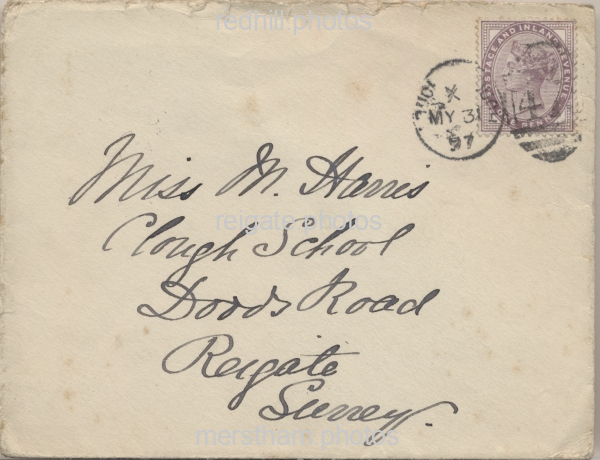 redhill.photos
POSTAGE AND INLAND REVENUE
X
MY 31
97
14
Miss M. Harris
reigate.photos
Clough School
Doods Road
Reigate
Surrey.
merstham.photos